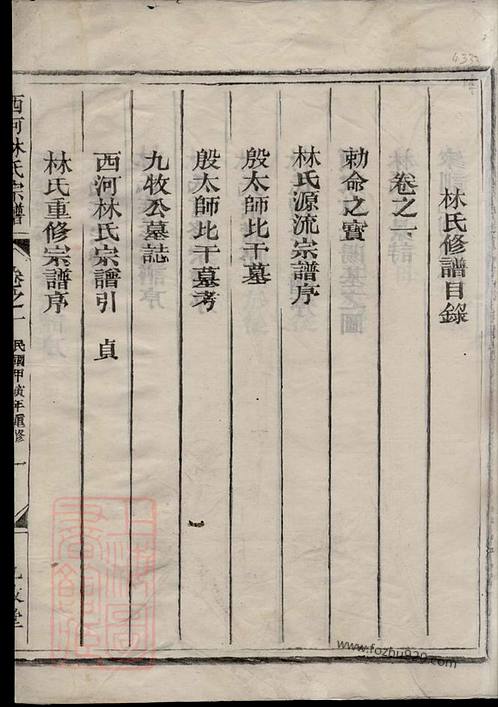 林氏修譜目錄
卷之一
勅命之寶
林氏源流宗譜序
殷太師比干墓
殷太師比干墓考
九牧公墓誌
西河林氏宗譜引 貞
林氏重修宗譜序
西河林氏宗譜 卷之一 民國甲寅年重修 一 九牧堂
www.fozhu920.com